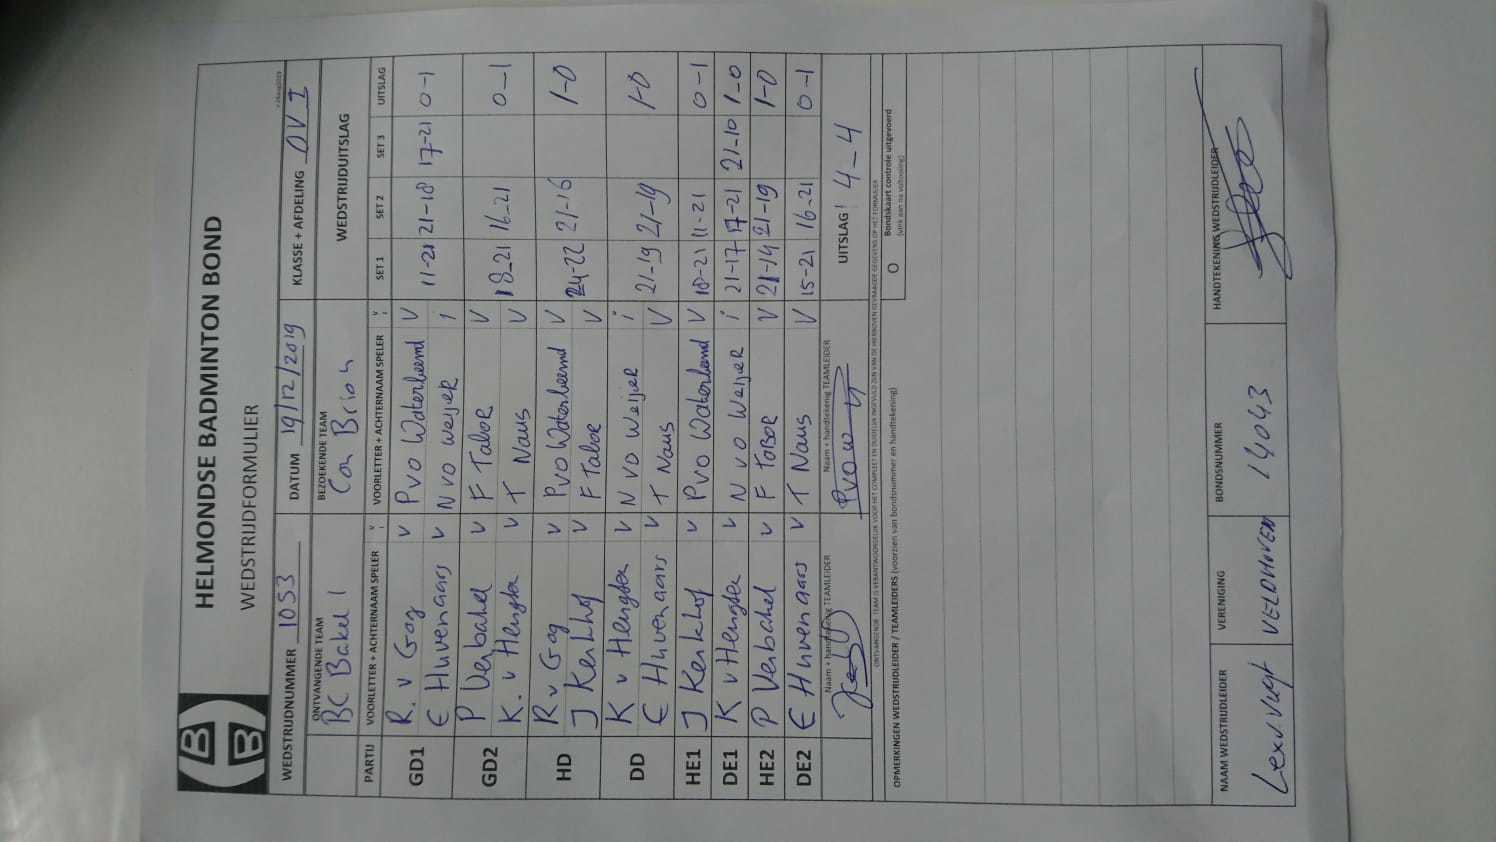 HELMONDSE BADMINTON BOND
WEDSTRIJDFORMULIER
WEDSTRIJDNUMMER 1053 DATUM 19/12/2019 KLASSE + AFDELING OV I
ONTVANGENDE TEAM BEZOEKENDE TEAM WEDSTRIJDUITSLAG
BC Bakel 1 Con Brion
PARTIJ VOORLETTER + ACHTERNAAM SPELER V/I VOORLETTER + ACHTERNAAM SPELER V/I SET 1 SET 2 SET 3 UITSLAG
GD1 R. v Gog v PVO Waterbeemd V 11-21 21-18 17-21 0-1
E Huvenaars v N vo weijer i
GD2 P Verbakel v F Taboe V 18-21 16-21 0-1
K. v Hengber v T Naus V
HD R v Gog v PVO Waterbeemd V 24-22 21-16 1-0
J Kerkhof v F Taboe V
DD K v Hengber v N vo weijer i 21-19 21-19 1-0
E Huvenaars v T Naus V
HE1 J Kerkhof v PVO Waterbeemd V 18-21 11-21 0-1
DE1 K v Hengber v N vo Weijer i 21-17 17-21 21-10 1-0
HE2 P Verbakel v F Taboe V 21-14 21-19 1-0
DE2 E Huvenaars v T Naus V 15-21 16-21 0-1
Naam + handtekening TEAMLEIDER Naam + handtekening TEAMLEIDER UITSLAG 4-4
ONTVANGENDE TEAM IS VERANTWOORDELIJK VOOR HET COMPLEET EN DUIDELIJK INGEVULD ZIJN VAN DE HIERBOVEN GEVRAAGDE GEGEVENS OP HET FORMULIER
OPMERKINGEN WEDSTRIJDLEIDER / TEAMLEIDERS (voorzien van bondsnummer en handtekening) O Bondskaart controle uitgevoerd
(vink aan na voltooiing)
NAAM WEDSTRIJDLEIDER VERENIGING BONDSNUMMER HANDTEKENING WEDSTRIJDLEIDER
Lex v. Vugt VELDHOVEN 14043